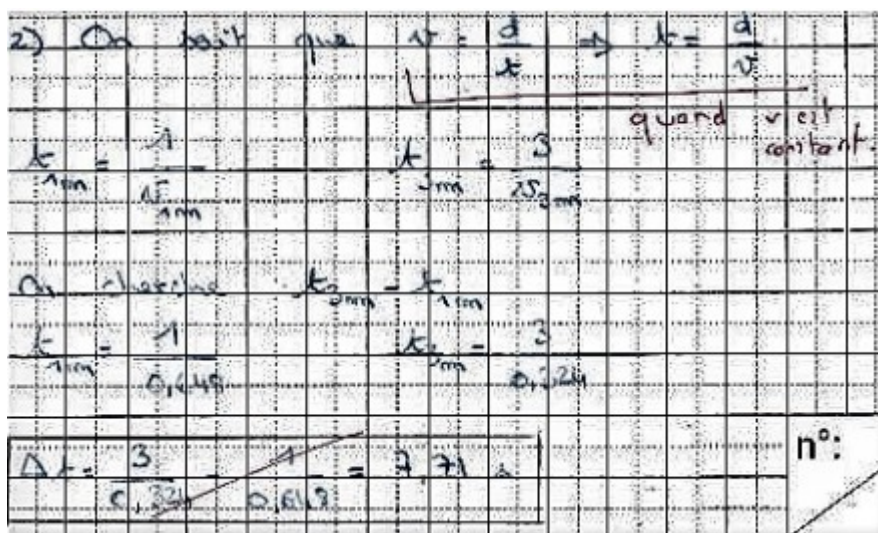 2) On sait que v = d/t ⇒ t = d/v
quand v est
constant.
t_1m = 1/v_1m t_3m = 3/v_3m
On cherche t_3m - t_1m
t_1m = 1/0,648 t_3m = 3/0,324
Δt = 3/0,324 - 1/0,618 = 7,71 s
n°: